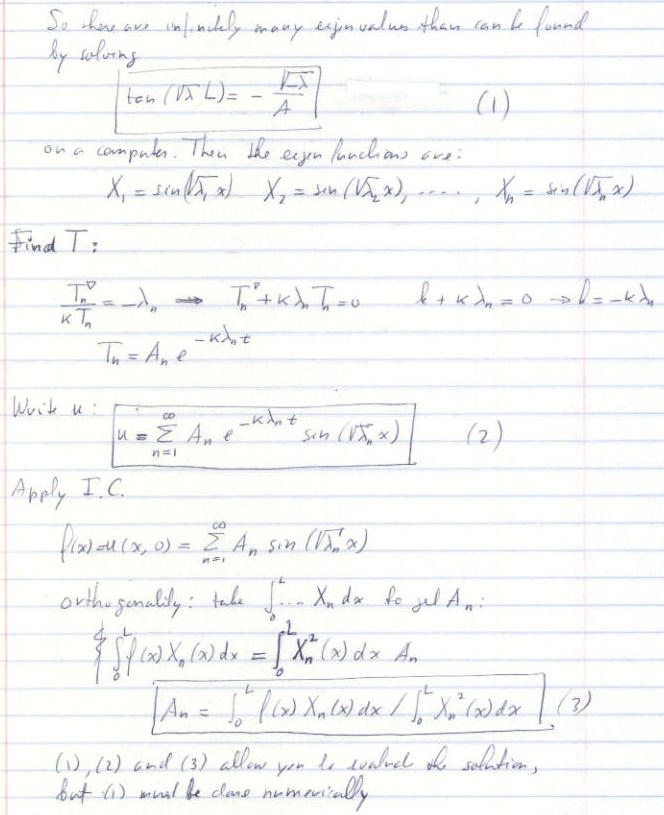 So there are infinitely many eigenvalues than can be found
by solving
tan (√λ L) = - √λ / A (1)
on a computer. Then the eigen functions are:
X₁ = sin(√λ₁ x) X₂ = sin (√λ₂ x), ....., Xₙ = sin(√λₙ x)
Find T:
Tₙ' / κ Tₙ = -λₙ ⇒ Tₙ' + κ λₙ Tₙ = 0 k + κ λₙ = 0 → k = -κ λₙ
Tₙ = Aₙ e^(-κλₙt)
Write u:
u = Σ_{n=1}^{∞} Aₙ e^(-κλₙt) sin (√λₙ x) (2)
Apply I.C.
f(x) = u(x, 0) = Σ_{n=1}^{∞} Aₙ sin (√λₙ x)
orthogonality: take ∫₀ᴸ ... Xₙ dx to get Aₙ:
∫₀ᴸ f(x) Xₙ(x) dx = ∫₀ᴸ Xₙ²(x) dx Aₙ
Aₙ = ∫₀ᴸ f(x) Xₙ(x) dx / ∫₀ᴸ Xₙ²(x) dx (3)
(1), (2) and (3) allow you to the solution,
but (1) must be done numerically